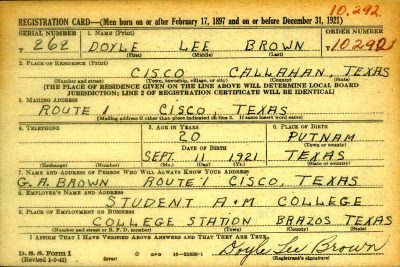 10,292
REGISTRATION CARD—(Men born on or after February 17, 1897 and on or before December 31, 1921)
SERIAL NUMBER 1. NAME (Print) ORDER NUMBER
T 262 DOYLE LEE BROWN 10,292
(First) (Middle) (Last)
2. PLACE OF RESIDENCE (Print)
CISCO, CALLAHAN, TEXAS
(Number and street) (Town, township, village, or city) (County) (State)
[THE PLACE OF RESIDENCE GIVEN ON THE LINE ABOVE WILL DETERMINE LOCAL BOARD
JURISDICTION; LINE 2 OF REGISTRATION CERTIFICATE WILL BE IDENTICAL]
3. MAILING ADDRESS
ROUTE 1 CISCO, TEXAS
[Mailing address if other than place indicated on line 2. If same insert word same]
4. TELEPHONE 5. AGE IN YEARS 6. PLACE OF BIRTH
20 PUTNAM
DATE OF BIRTH (Town or county)
SEPT. 11 1921 TEXAS
(Exchange) (Number) (Mo.) (Day) (Yr.) (State or country)
7. NAME AND ADDRESS OF PERSON WHO WILL ALWAYS KNOW YOUR ADDRESS
G. A. BROWN ROUTE 1 CISCO, TEXAS
8. EMPLOYER'S NAME AND ADDRESS
STUDENT A+M COLLEGE
9. PLACE OF EMPLOYMENT OR BUSINESS
COLLEGE STATION BRAZOS TEXAS
(Number and street or R. F. D. number) (Town) (County) (State)
I AFFIRM THAT I HAVE VERIFIED ABOVE ANSWERS AND THAT THEY ARE TRUE.
D. S. S. Form 1 GPO 16—21630-1 Doyle Lee Brown
(Revised 1-3-42) (Registrant's signature)